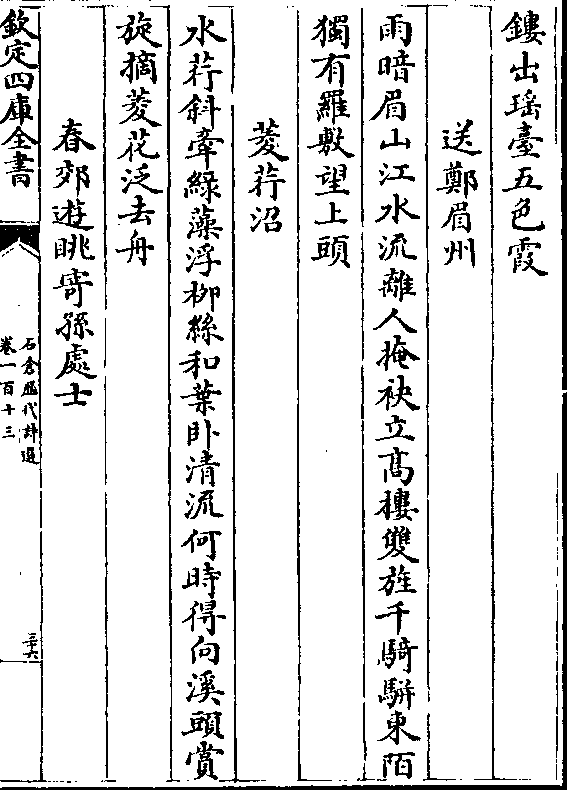 鏤出瑶臺五色霞
送鄭眉州
雨暗眉山江水流離人掩袂立髙樓雙旌千騎駢東陌
獨有羅敷望上頭
菱荇沼
水荇斜牽綠藻浮柳絲和葉卧清流何時得向溪頭賞
旋摘菱花泛去舟
春郊遊眺寄孫處士
欽定四庫全書
石倉歷代詩選
卷一百十三
三十六